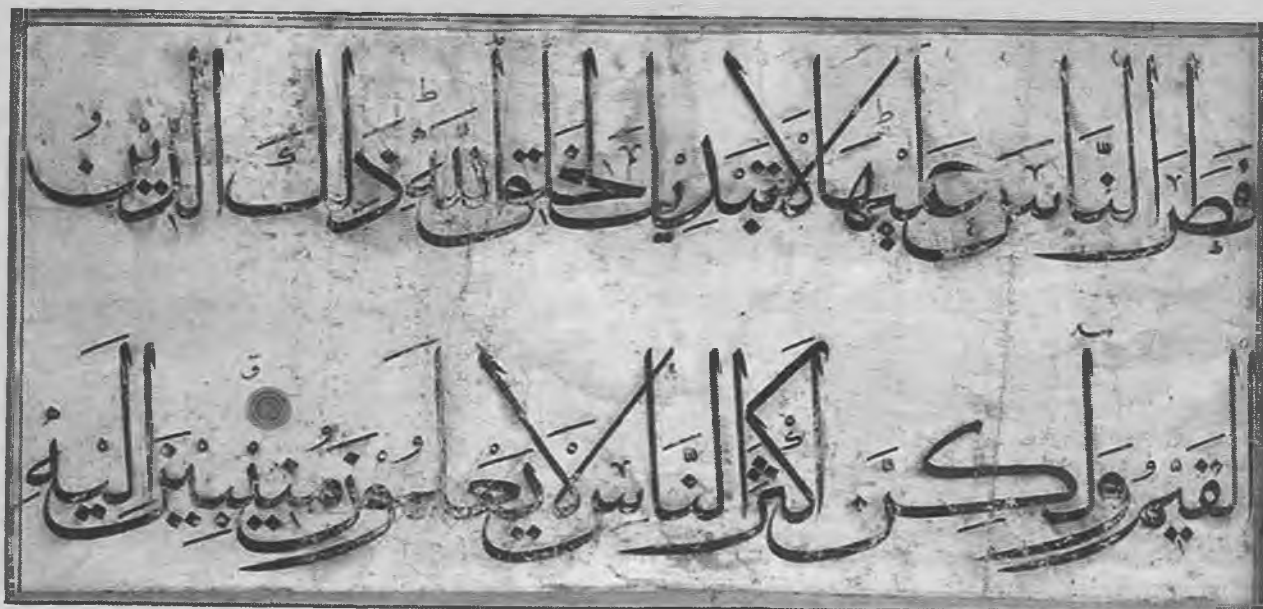 فَطَرَ النَّاسَ عَلَيْهَا لَا تَبْدِيلَ لِخَلْقِ اللَّهِ ذَلِكَ الدِّينُ
الْقَيِّمُ وَلَكِنَّ أَكْثَرَ النَّاسِ لَا يَعْلَمُونَ مُنِيبِينَ إِلَيْهِ